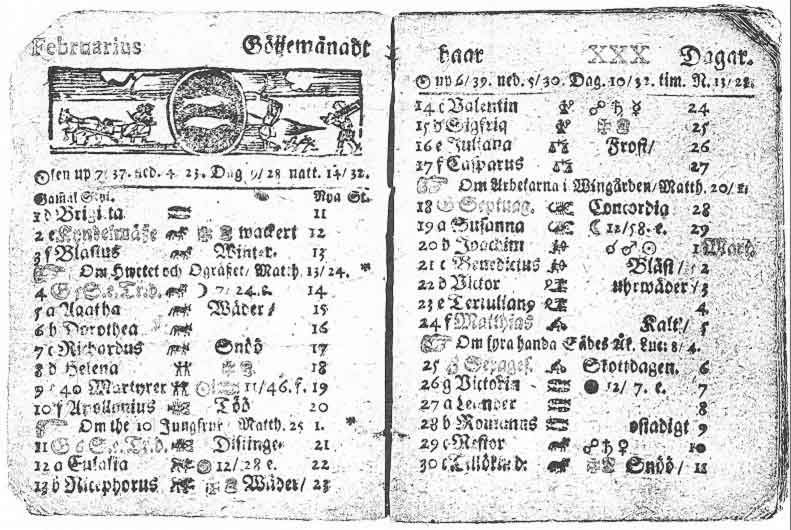 Februarius Göjemånadt
Solen up 7/37. ned. 4 23. Dag 9/28 natt. 14/32.
Gamal Styl. Nya St.
1 d Brigi ta 11
2 e Kyndelmässe wackert 12
3 f Blasius Winter. 13
Om Hwetet och Ogräset/ Matth. 13/24.
4 G 7/24. 14
5 a Agatha Wäder/ 15
6 b Dorothea 16
7 c Richardus Snöö 17
8 d Helena 18
9 e 40 Martyrer 11/46. f. 19
10 f Apollonius Töö 20
Om the 10 Jungfrur Matth. 25 1.
11 G Distinge 21
12 a Eulalia 12/28 e. 22
13 b Nicephorus Wäder/ 23
haar XXX Dagar.
up 6/39. ned. 5/30. Dag. 10/32. tim. N. 13/28.
14 c Valentin ☍ ♄ ☿ 24
15 d Sigfrid 25
16 e Juliana Frost/ 26
17 f Casparus 27
Om Arbetarna i Wingården/ Matth. 20/1.
18 G Septuag. Concordia 28
19 a Susanna ☾ 12/58. e. 29
20 b Joachim ☌ ♂ ☉ 1 Mart.
21 c Benedictus Bläst/ 2
22 d Victor uhrwäder/ 3
23 e Tertulian9 4
24 f Matthias Kalt/ 5
Om fyra handa Sädes Åk. Luc: 8/4.
25 G Sexages. Skottdagen. 6
26 g Victorin ● 12/7. e. 7
27 a Leander 8
28 b Romanus ostadigt 9
29 c Nestor ☍ ♄ ♀ 10
30 c Snöö/ 11